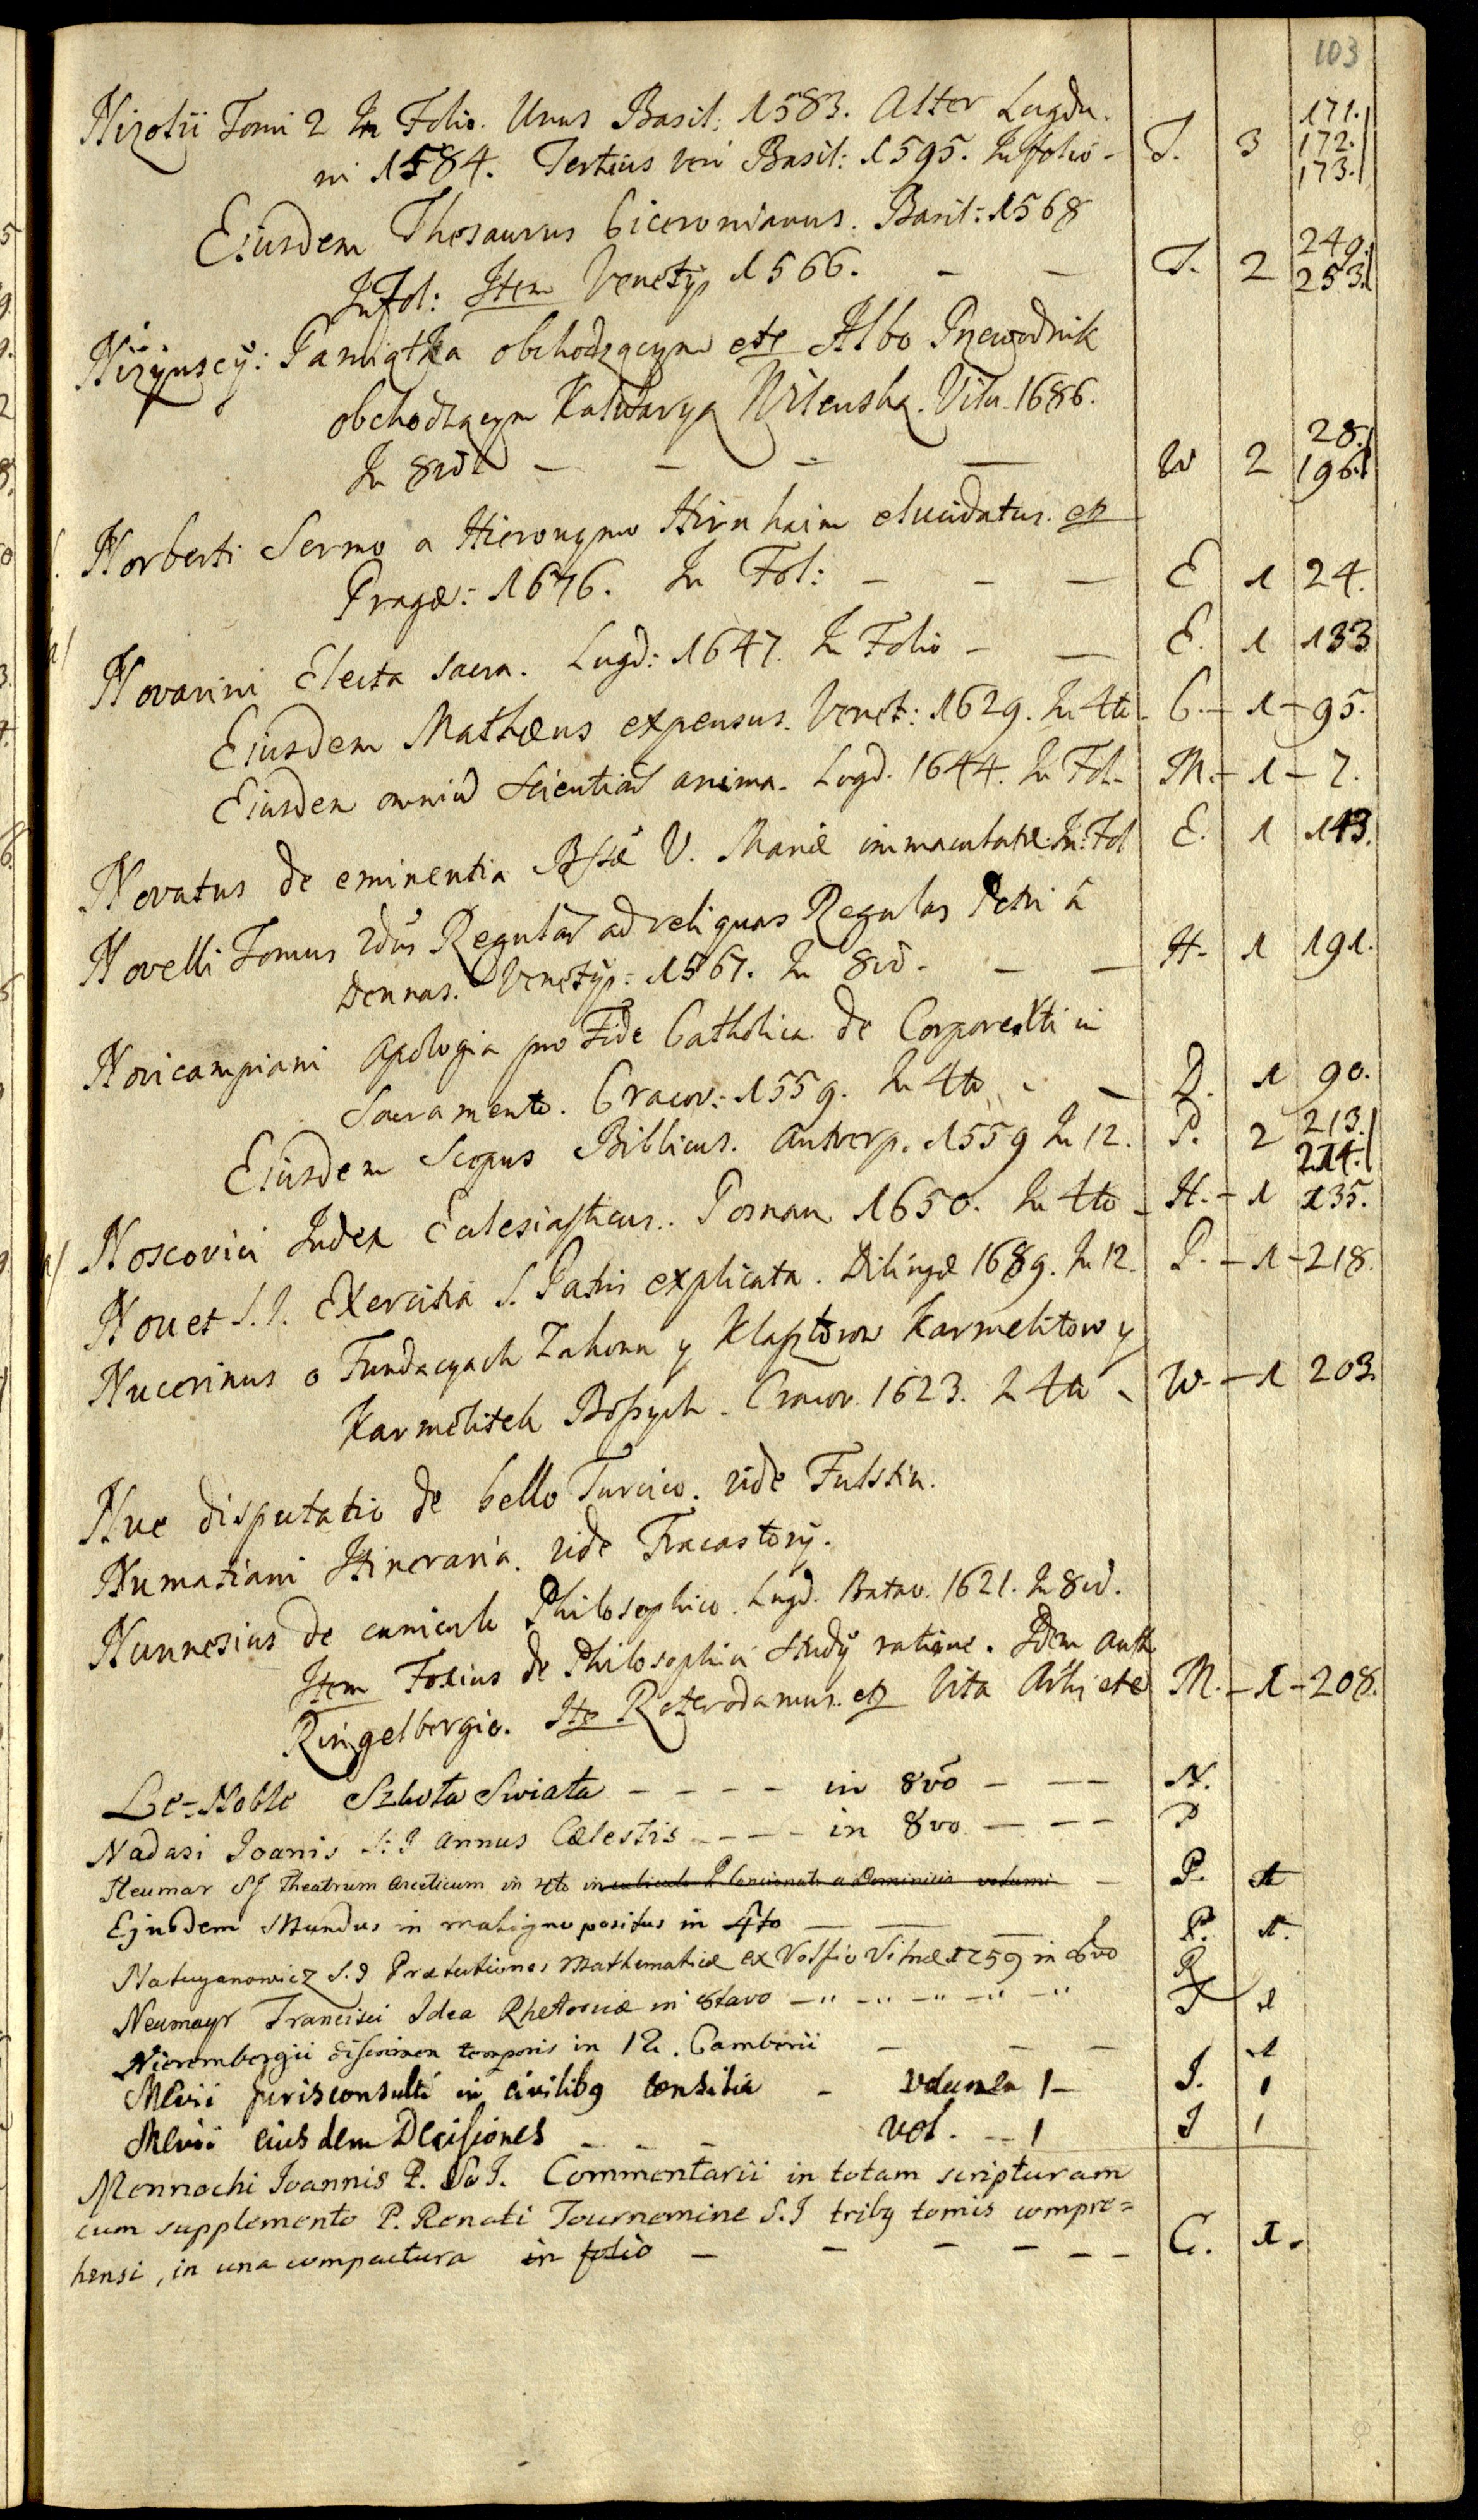 103
Nizolii Tomi 2 In Folio. Unus Basil: 1583. Alter Lugdu.
ni 1584. Tertius vero Basil: 1595. In folio - T. 3 171. 172. 173.
Eiusdem Thesaurus Ciceronianus. Basil: 1568
In Fol: Item Venetijs 1566. - - T. 2 249. 253.
Niżynscy: Pamiątka obchodzącym etc Albo Przewodnik
obchodzącym Kalwaryą Wilenską. Viln. 1686.
In 8vo - - - - W 2 28. 196.
Norberti Sermo a Hieronymo Hirnhaim elucidatus. etc
Pragæ: 1676. In Fol: - - - E 1 24.
Novarini Electa sacra. Lugd: 1647. In Folio - - E. 1 133
Eiusdem Mathæus expensus. Venet: 1629. In 4to - C. - 1 - 95.
Eiusdem omnium Scientiarum anima. Lugd. 1644. In Fol. M. - 1 - 7.
Novatus de eminentia Bssæ V. Mariæ immaculatæ. In Fol E. 1 143.
Novelli Tomus 2dus Regularum ad reliquas Regulas Petri à
Dennas. Venetijs: 1567. In 8vo. - - H. 1 191.
Novicampiani Apologia pro Fide Catholica de Corpore Xti in
Sacramento. Cracov: 1559. In 4to - - D. 1 90.
Eiusdem Scopus Biblicus. Antverp. 1559 In 12. P. 2 213. 214.
Noscovici Index Eclesiasticus. Posnan 1650. In 4to - H. - 1 135.
Nouet S.J. Exercitia S. Patris explicata. Dilingæ 1689. In 12. P. - 1 - 218.
Nucerinus o Fundacyach Zakonu y Klasztorow Karmelitow y
Karmelitek Bossych. Cracov. 1623. In 4to - W. - 1 203.
Nue disputatio de bello Turcico. vide Fulstin.
Numatiani Itineraria. vide Fracastorij.
Nunnesius de Philosophico. Lugd. Batav. 1621. In 8vo.
Item Foxius de Philosophici studij ratione. Idem auth
Ringelbergio. Ite Roterodamus. etc Vita Arlis etc M. - 1 - 208.
Le-Noble Szkoła Swiata - - - - in 8vo - - - N.
Nadasi Joanis S:J annus Cælestis - - - - in 8vo - - - P
Neumar SJ Theatrum asceticum in 4to - P. 1
Ejusdem Mundus in maligno positus in 4to - - - P. 1.
Natuyanowicz S.J Prælectiones Mathematicæ ex Volfio Vilnæ 1759 in 8vo R
Neumayr Francisci Idea Rhetoricæ in 8tavo - - - - - T 1
Nierembergii discrimen temporis in 12. Camberii - - - 1
Mevii jurisconsulti in civilibg consilia - volumen 1 - J. 1
Mevii eiusdem Decisiones - - - vol. - 1 J 1
Mennochi Joannis P. So J. Commentarii in totam scripturam
cum supplemento P. Renati Tournemine S.J tribg tomis compre=
hensi, in una compactura in folio - - - - - - C. 1.